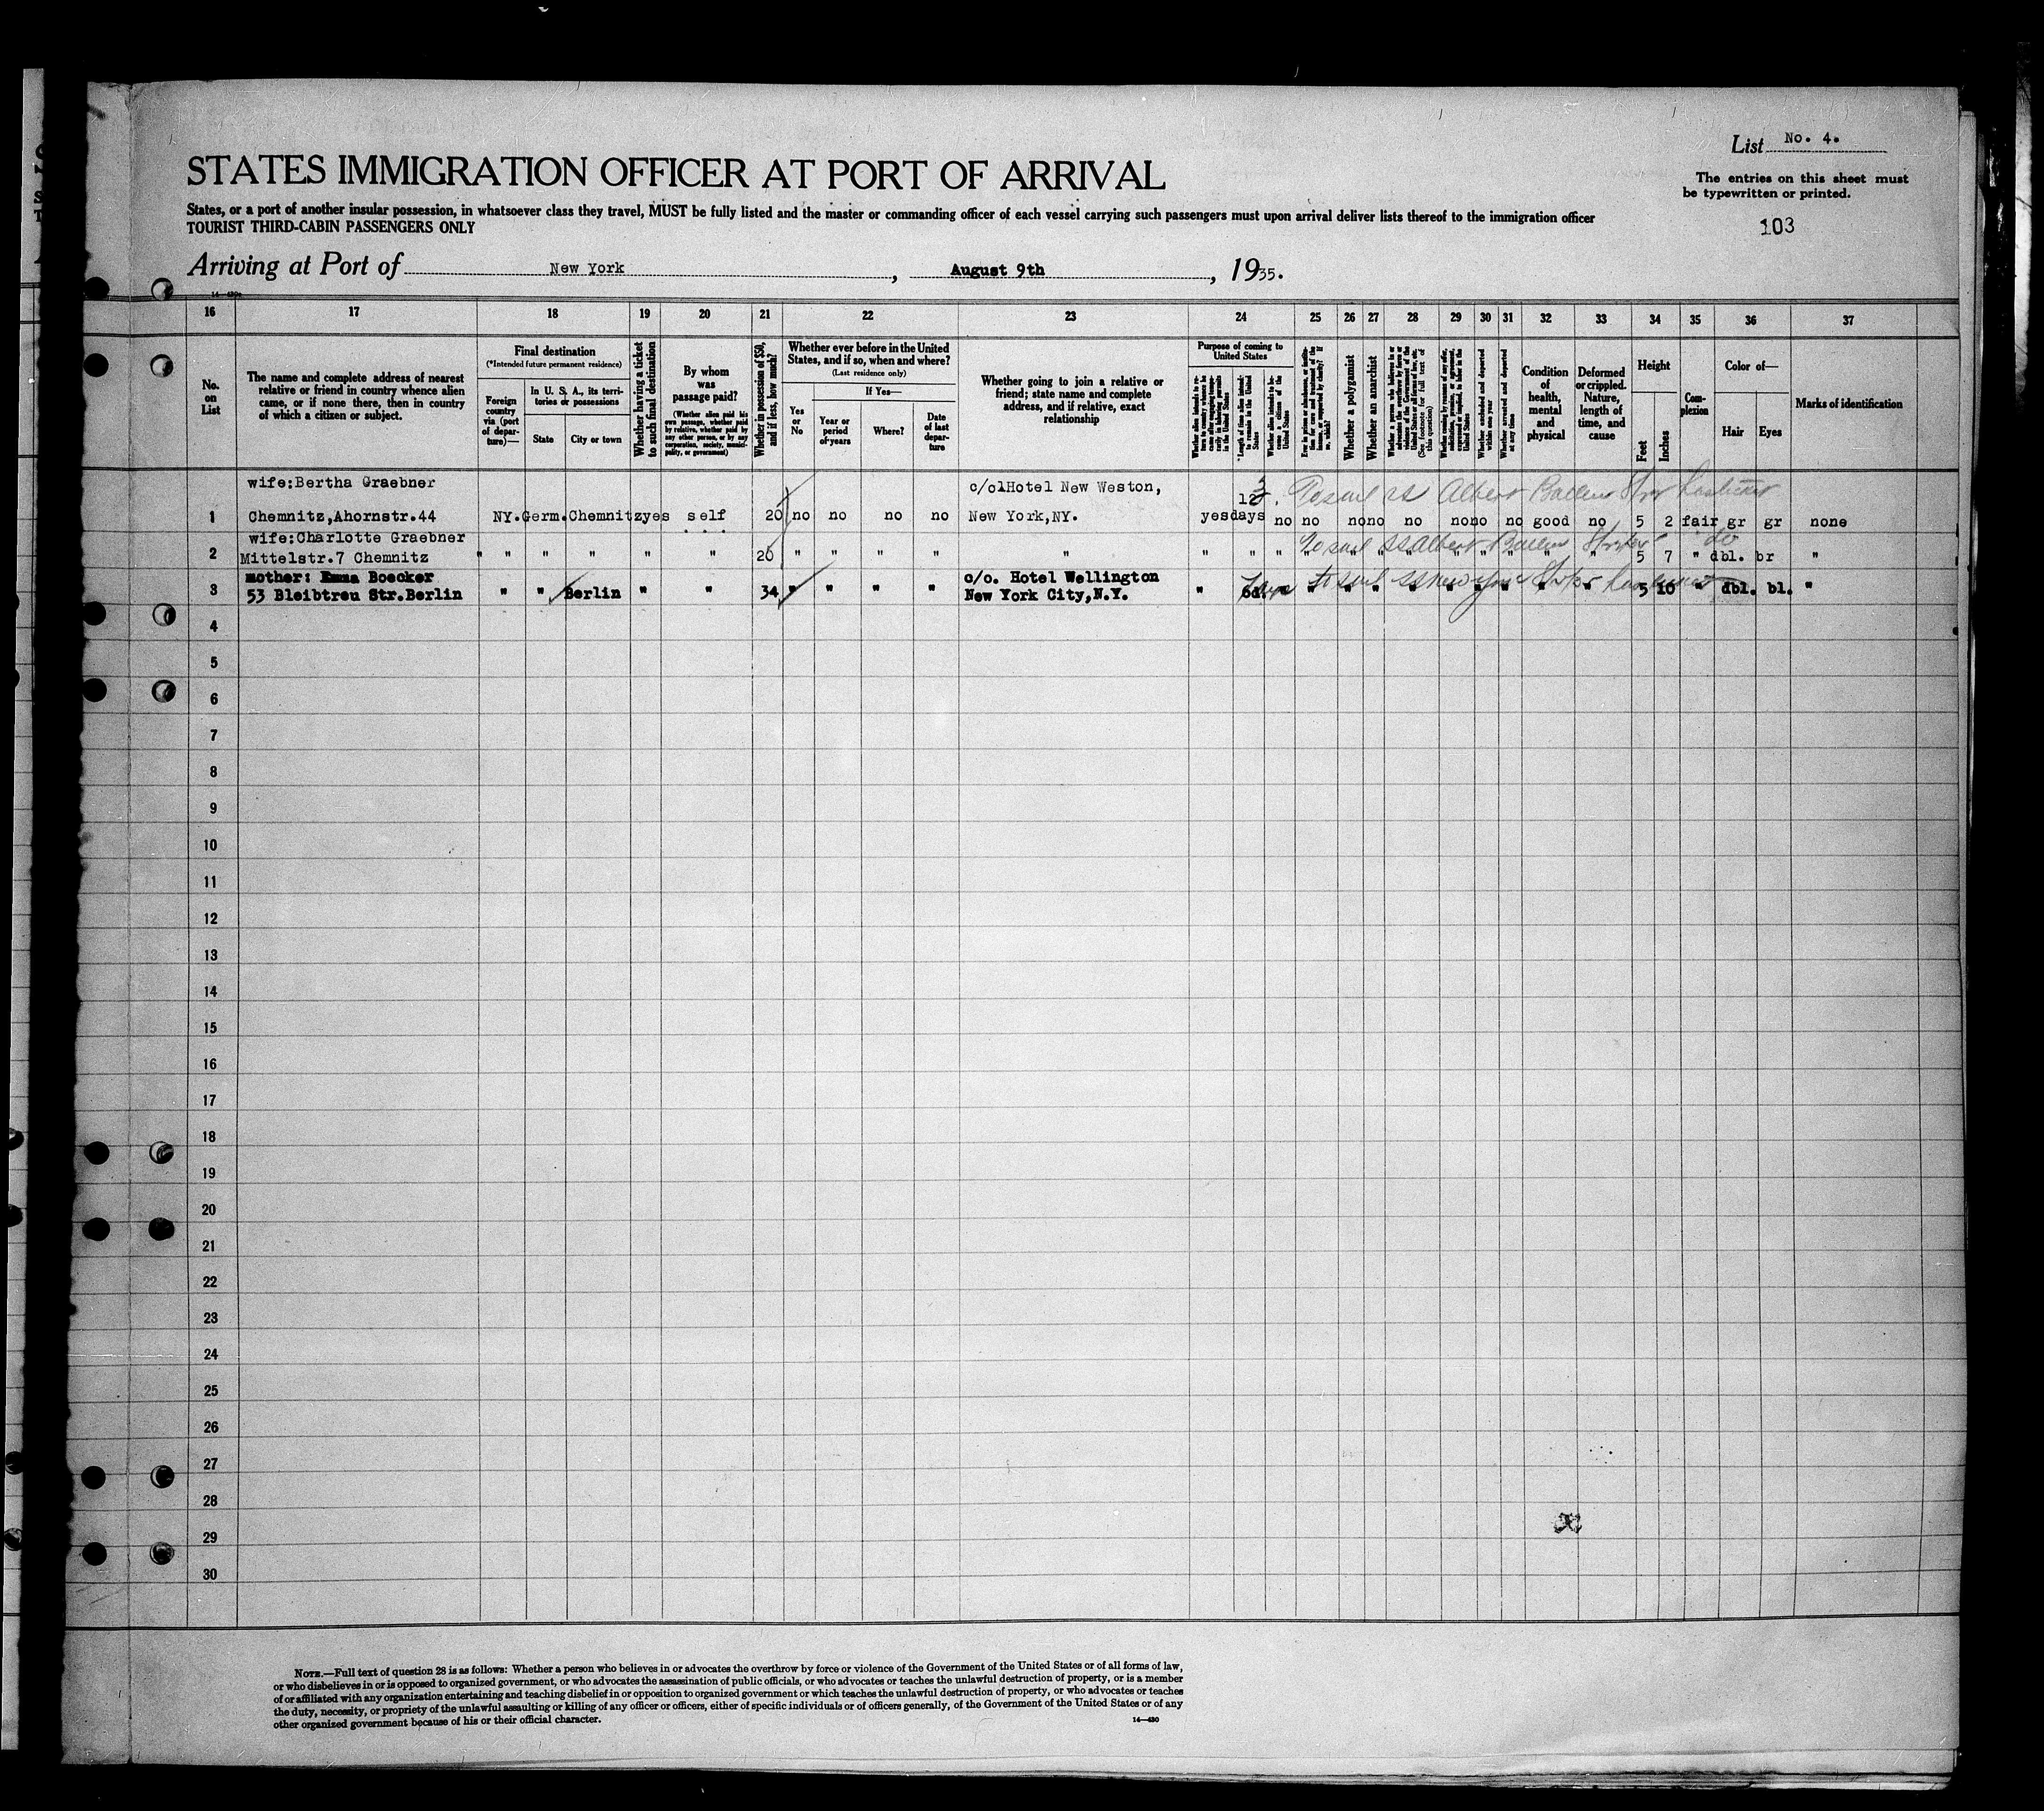 List No. 4.
STATES IMMIGRATION OFFICER AT PORT OF ARRIVAL
The entries on this sheet must
be typewritten or printed.
States, or a port of another insular possession, in whatsoever class they travel, MUST be fully listed and the master or commanding officer of each vessel carrying such passengers must upon arrival deliver lists thereof to the immigration officer
TOURIST THIRD-CABIN PASSENGERS ONLY
103
Arriving at Port of New York, August 9th, 1935.
14—430
16 17 18 19 20 21 22 23 24 25 26 27 28 29 30 31 32 33 34 35 36 37
No.
on
List
The name and complete address of nearest
relative or friend in country whence alien
came, or if none there, then in country
of which a citizen or subject.
Final destination
(*Intended future permanent residence)
Foreign
country
via (port
of depar-
ture)—
In U. S. A., its terri-
tories or possessions
State
City or town
Whether having a ticket
to such final destination
By whom
was
passage paid?
(Whether alien paid his
own passage, whether paid
by relative, whether paid by
any other person, or by any
corporation, society, munici-
pality, or government)
Whether in possession of $50,
and if less, how much?
Whether ever before in the United
States, and if so, when and where?
(Last residence only)
Yes
or
No
If Yes—
Year or
period
of years
Where?
Date
of last
depar-
ture
Whether going to join a relative or
friend; state name and complete
address, and if relative, exact
relationship
Purpose of coming to
United States
Whether a polygamist
Whether an anarchist
Whether excluded and deported
within one year
Whether arrested and deported
at any time
Condition
of
health,
mental
and
physical
Deformed
or crippled.
Nature,
length of
time, and
cause
Height
Feet
Inches
Com-
plexion
Color of—
Hair
Eyes
Marks of identification
wife:Bertha Graebner c/o Hotel New Weston, To sail ss Albert Ballin
1 Chemnitz,Ahornstr.44 NY. Germ. Chemnitz yes self 20 no no no no New York,NY. yes days no no no no no no no no good no 5 2 fair gr gr none
wife:Charlotte Graebner
2 Mittelstr.7 Chemnitz " " " " " " 20 " " " " " " " " To sail SS Albert Ballin do 5 7 " dbl. br "
mother: Emma Boecker c/o. Hotel Wellington
3 53 Bleibtreu Str.Berlin " " Berlin " " 34 " " " " New York City,N.Y. " " to sail ss New York 5 10 " dbl. bl. "
4
5
6
7
8
9
10
11
12
13
14
15
16
17
18
19
20
21
22
23
24
25
26
27
28
29
30
NOTE.—Full text of question 28 is as follows: Whether a person who believes in or advocates the overthrow by force or violence of the Government of the United States or of all forms of law,
or who disbelieves in or is opposed to organized government, or who advocates the assassination of public officials, or who advocates or teaches the unlawful destruction of property, or is a member
of or affiliated with any organization entertaining and teaching disbelief in or opposition to organized government or which teaches the unlawful destruction of property, or who advocates or teaches
the duty, necessity, or propriety of the unlawful assaulting or killing of any officer or officers, either of specific individuals or of officers generally, of the Government of the United States or of any
other organized government because of his or their official character.
14—430